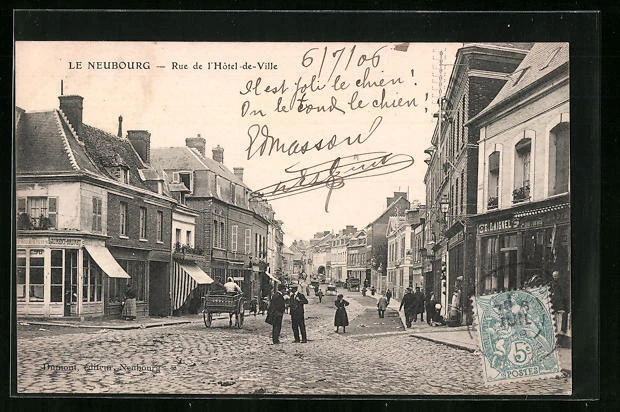 LE NEUBOURG — Rue de l'Hôtel-de-Ville
6/7/06
Il est joli le chien!
On le tond le chien!
Ed Masson
E. LAIGNEL
5c
POSTES
Dumont, Editeur, Neubourg